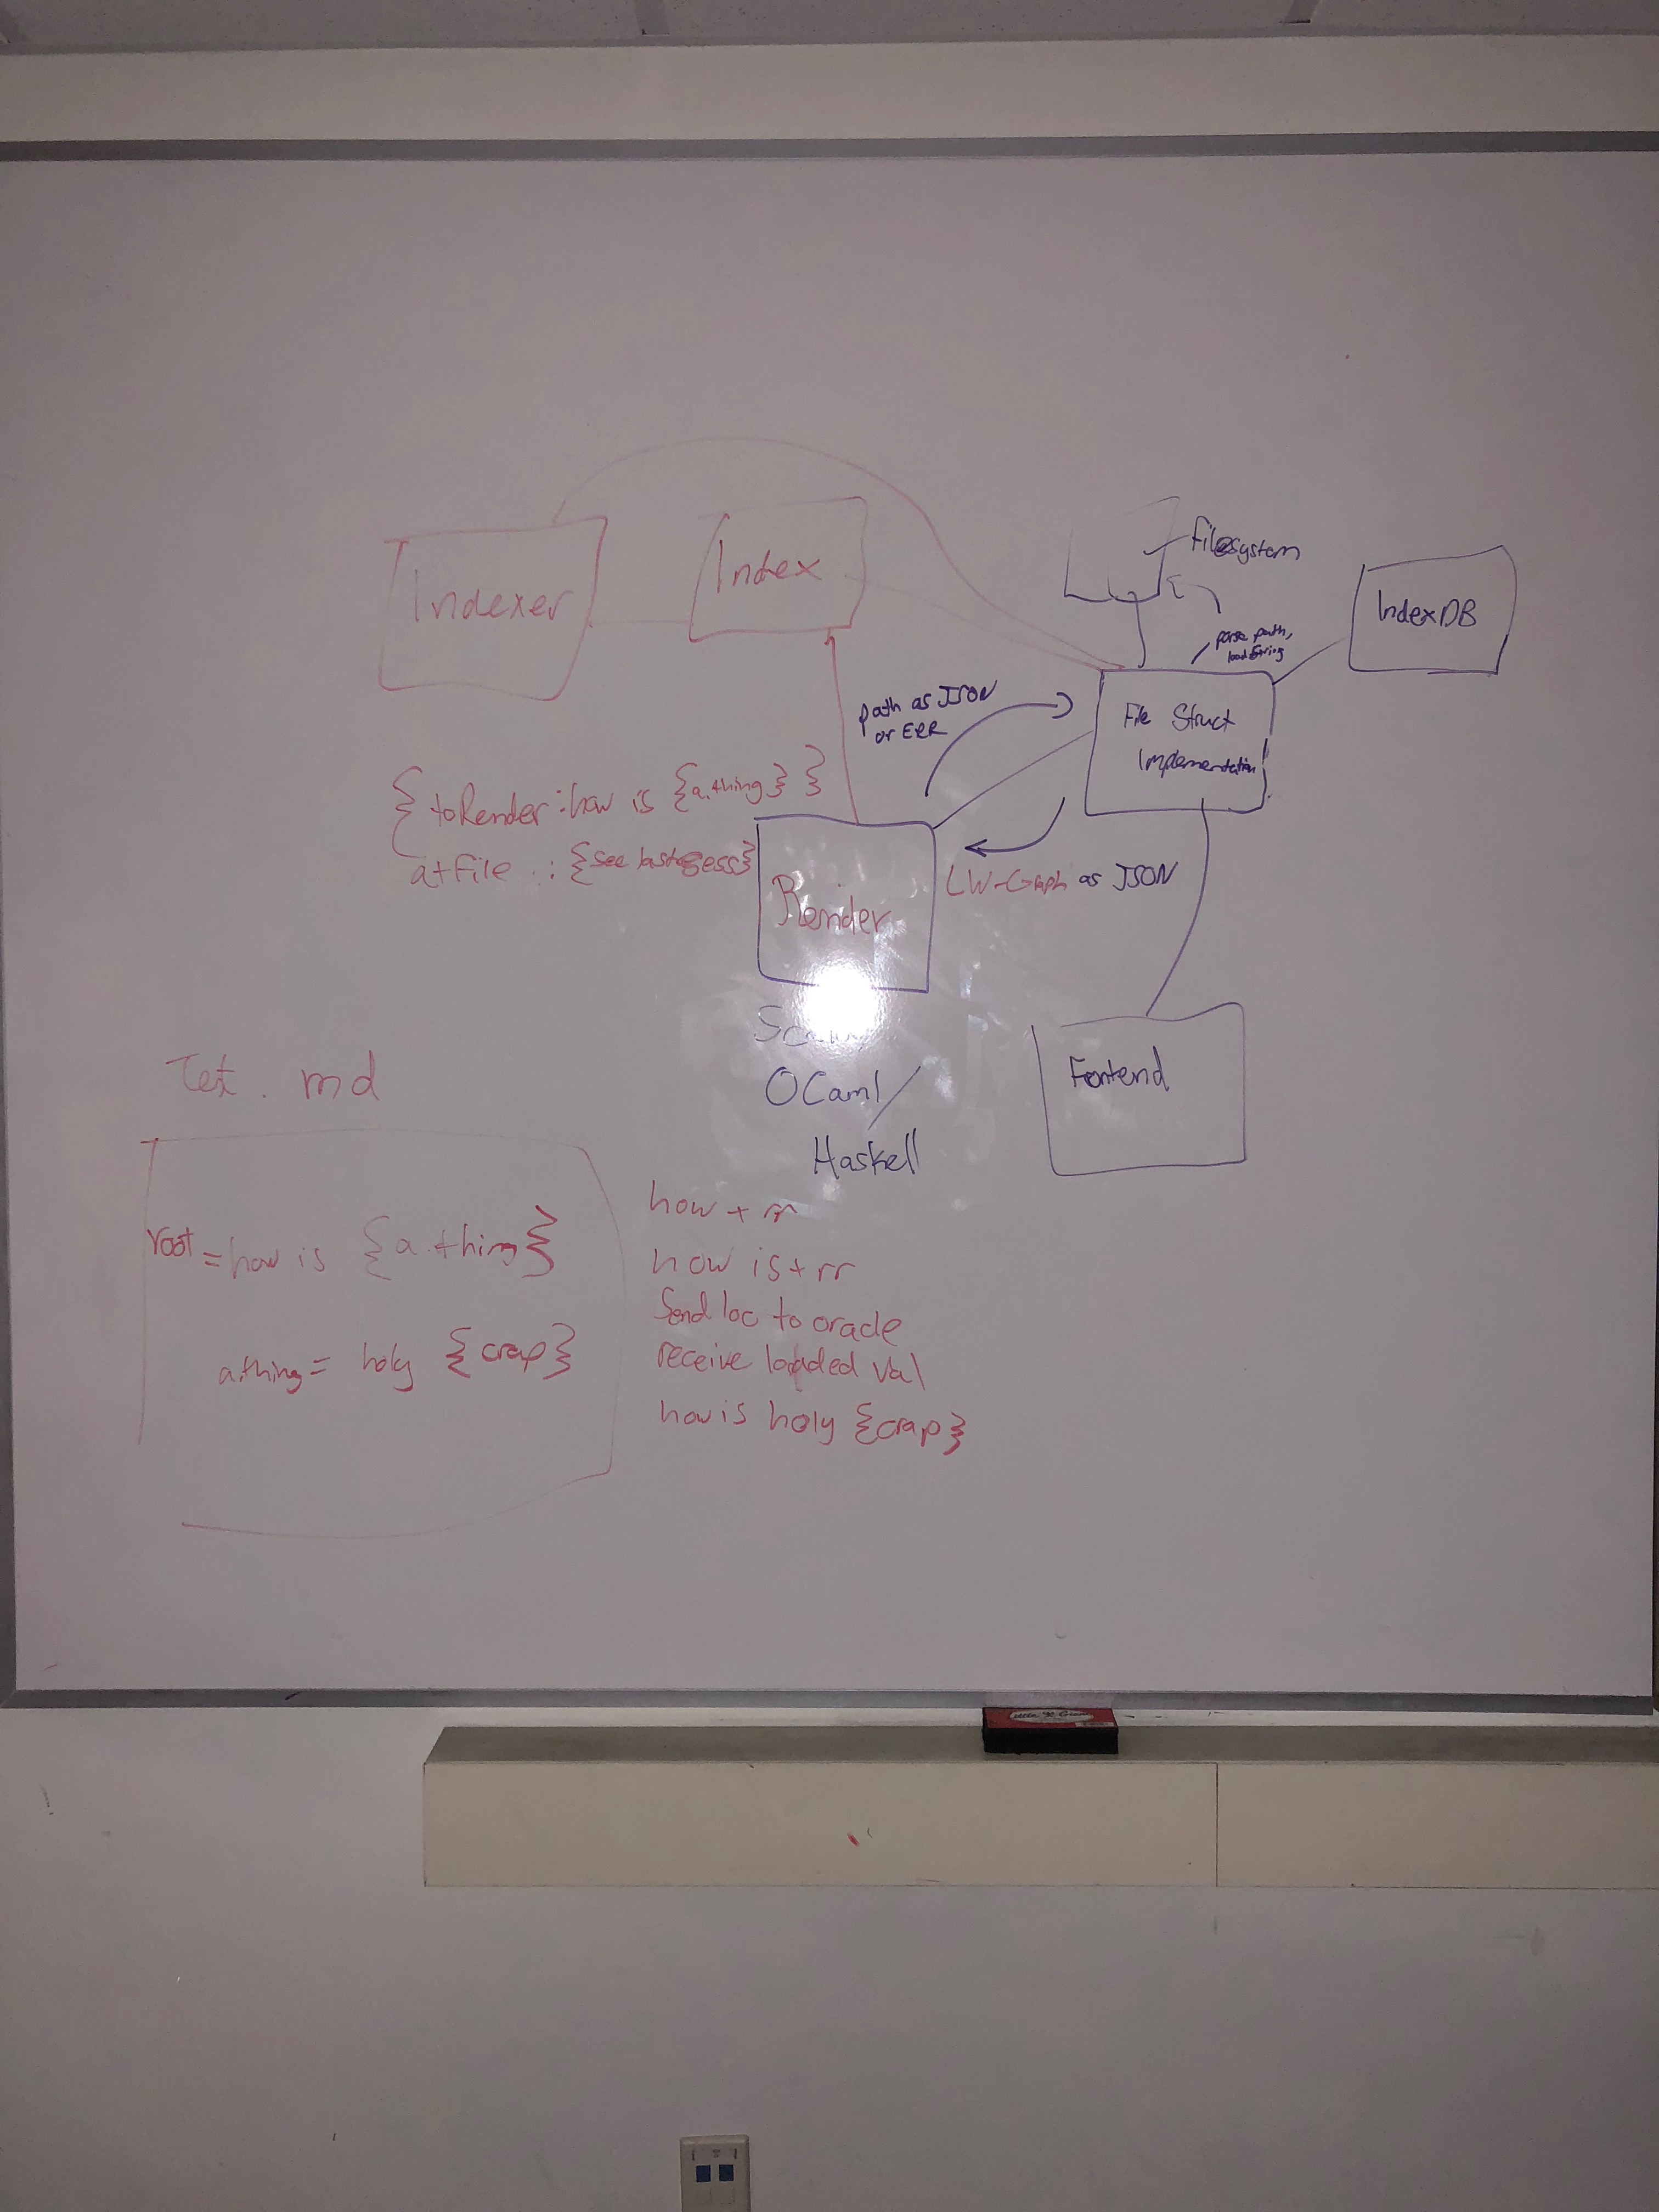 Indexer
Index
Filesystem
IndexDB
parse path,
load string
File Struct
Implementation
path as JSON
or ERR
{ toRender: how is {a.thing} }
at File : {see last
Render
LW-Graph as JSON
OCaml /
Haskell
Fontend
Tet . md
root = how is {a.thing}
a.thing = holy {crap}
how + rr
how is + rr
Send loc to oracle
receive loaded val
how is holy {crap}